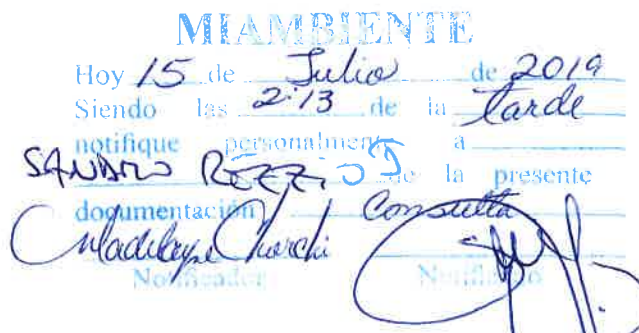 MIAMBIENTE
Hoy 15 de Julio de 2019
Siendo las 2:13 de la tarde
notifique personalmente a
SANDRO de la presente
documentación Consulta
Notificador Notificado